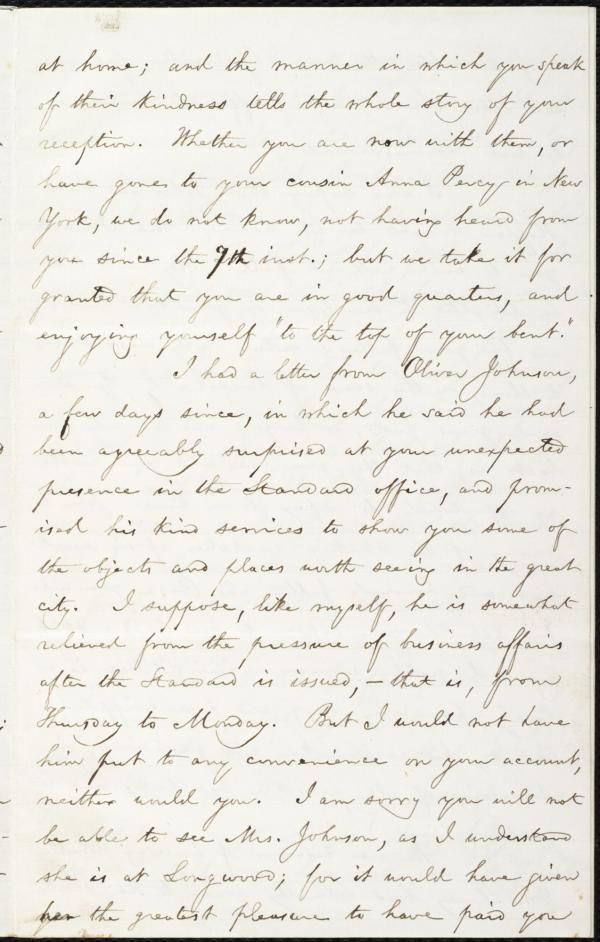 at home; and the manner in which you speak
of their kindness tells the whole story of your
reception. Whether you are now with them, or
have gone to your cousin Anna Percy in New
York, we do not know, not having heard from
you since the 9th inst.; but we take it for
granted that you are in good quarters, and
enjoying yourself "to the top of your bent."
I had a letter from Oliver Johnson,
a few days since, in which he said he had
been agreeably surprised at your unexpected
presence in the Standard office, and prom-
ised his kind services to show you some of
the objects and places worth seeing in the great
city. I suppose, like myself, he is somewhat
relieved from the pressure of business affairs
after the Standard is issued, – that is, from
Thursday to Monday. But I would not have
him put to any convenience on your account,
neither would you. I am sorry you will not
be able to see Mrs. Johnson, as I understand
she is at Longwood; for it would have given
her the greatest pleasure to have paid you